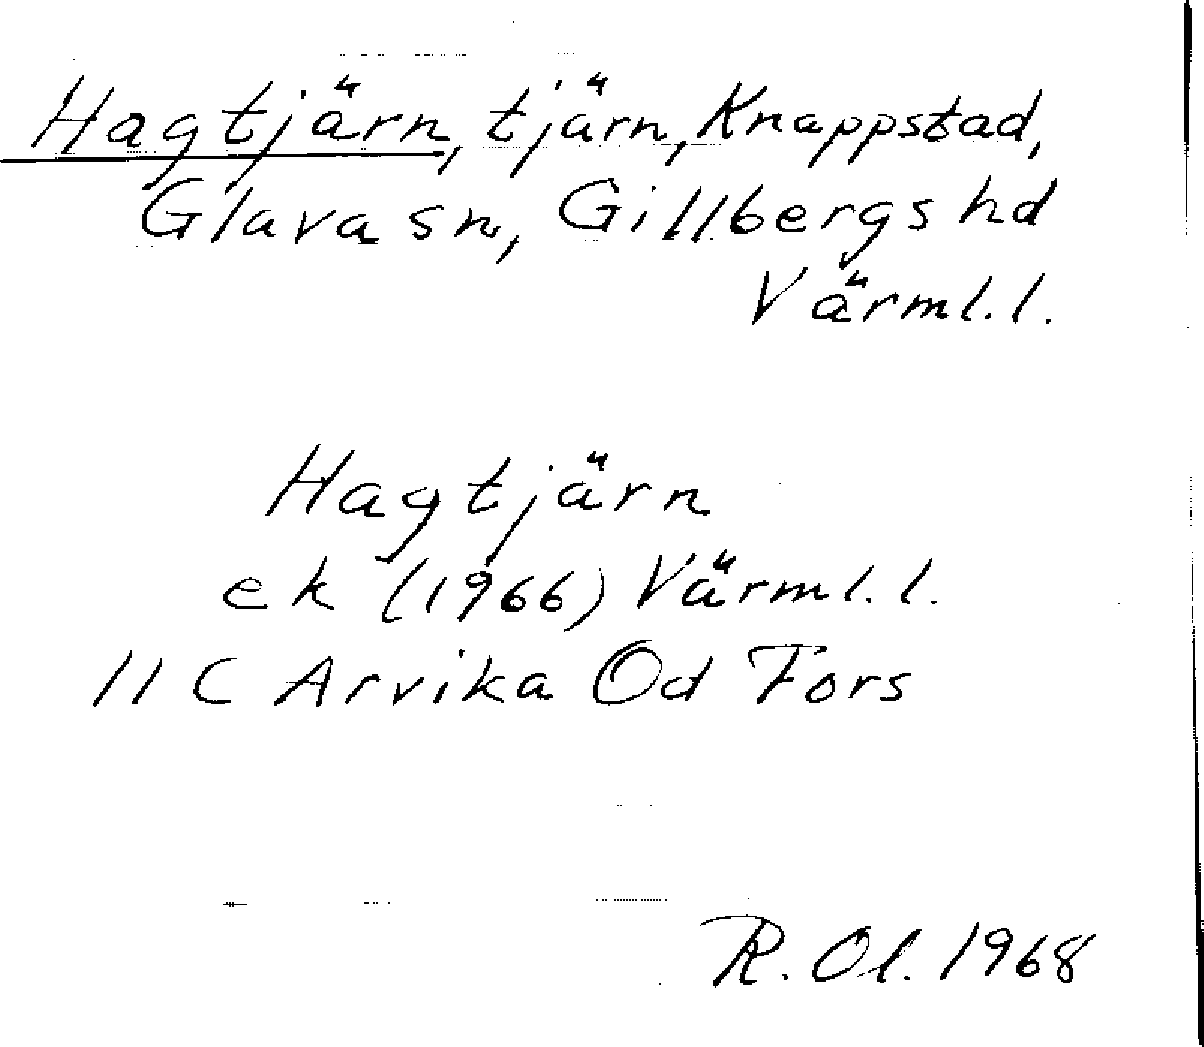 Hagtjärn, tjärn, Knappstad,
Glava sn, Gillbergs hd
Värml. l.
Hagtjärn
ek (1966) Värml. l.
11 C Arvika Od Fors
R. Ol. 1968